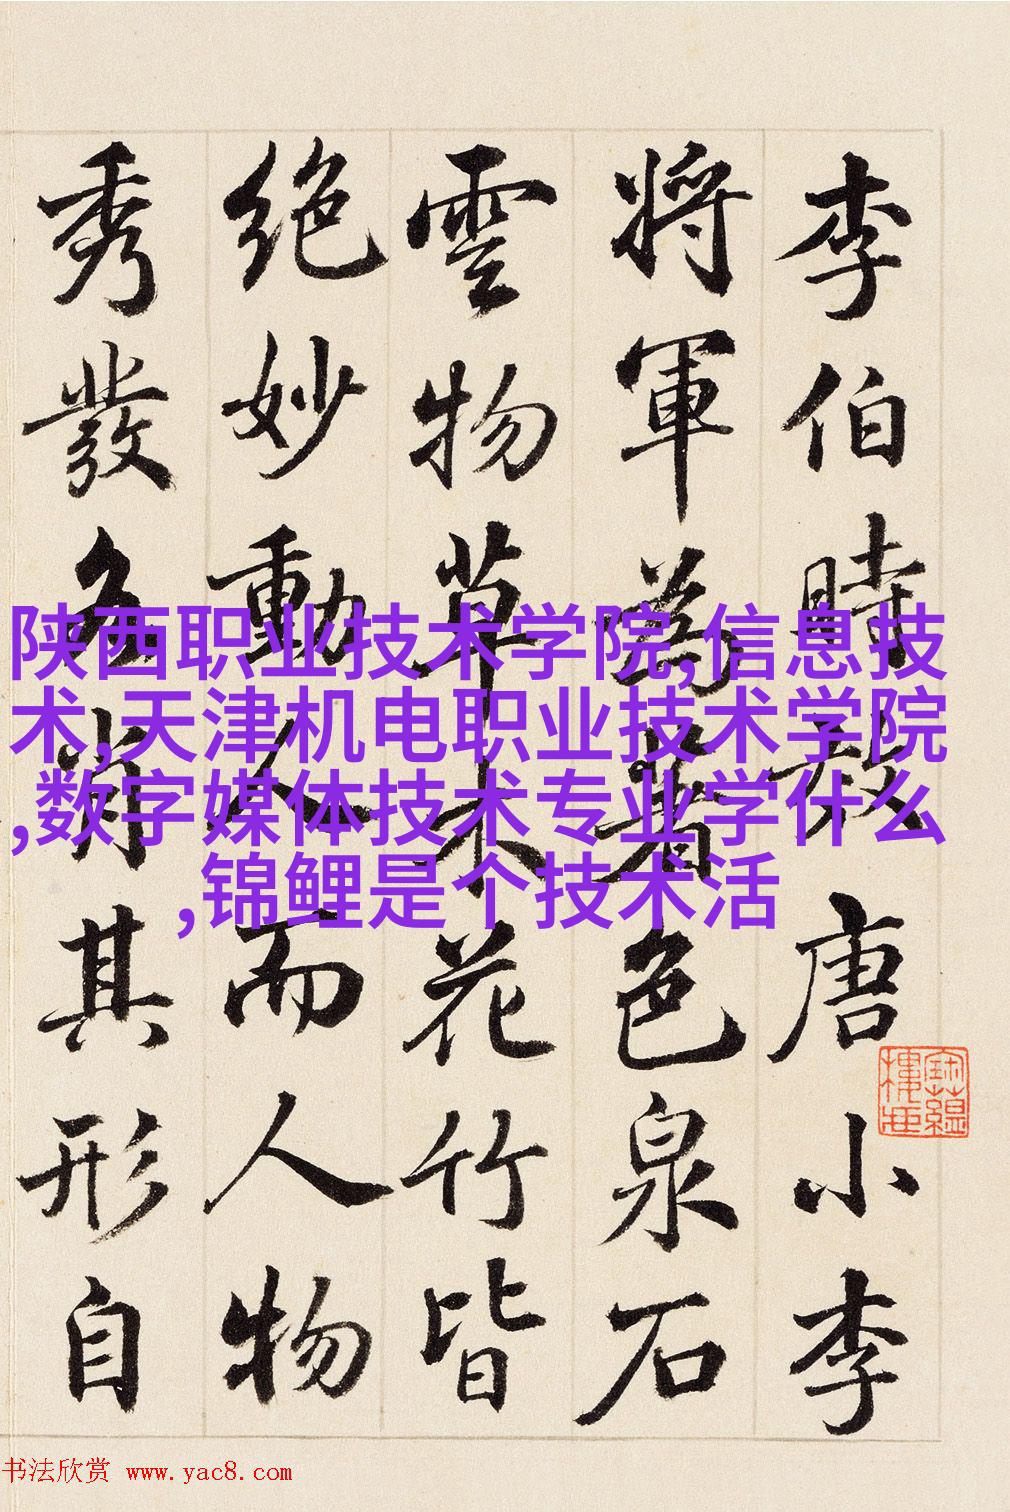 李伯時效唐小李
將軍為著色泉石
雲物草木花竹皆
絶妙動人而人物
秀發各肖其形自
陕西职业技术学院,信息技
术,天津机电职业技术学院
,数字媒体技术专业学什么
,锦鲤是个技术活
书法欣赏 www.yac8.com